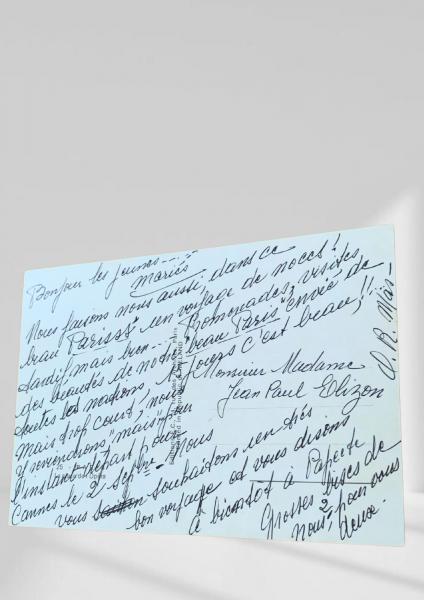 Bonjour les jeunes---
mariés
Nous faisons nous aussi, dans ce
beau Parisss un voyage de noces!
tardif, mais bien--- Promenades, visites,
des beautés de notre beau Paris envié de
toutes les nations, toujours c'est beau,!!
mais trop court, nous
y reviendrons, mais pour
l'instant départ pour
Cannes le 2 sept
Nous
vous souhaitons un très
bon voyage et vous disons
à bientôt à Papeete
Grosses bises de
nous 2 pour vous
deux.
Monsieur Madame
Jean Paul Elizon